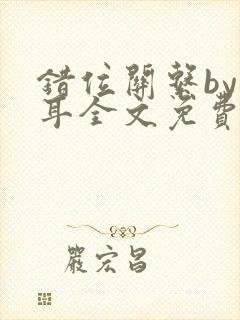 错位關繫by
耳全文免費
嚴宏昌